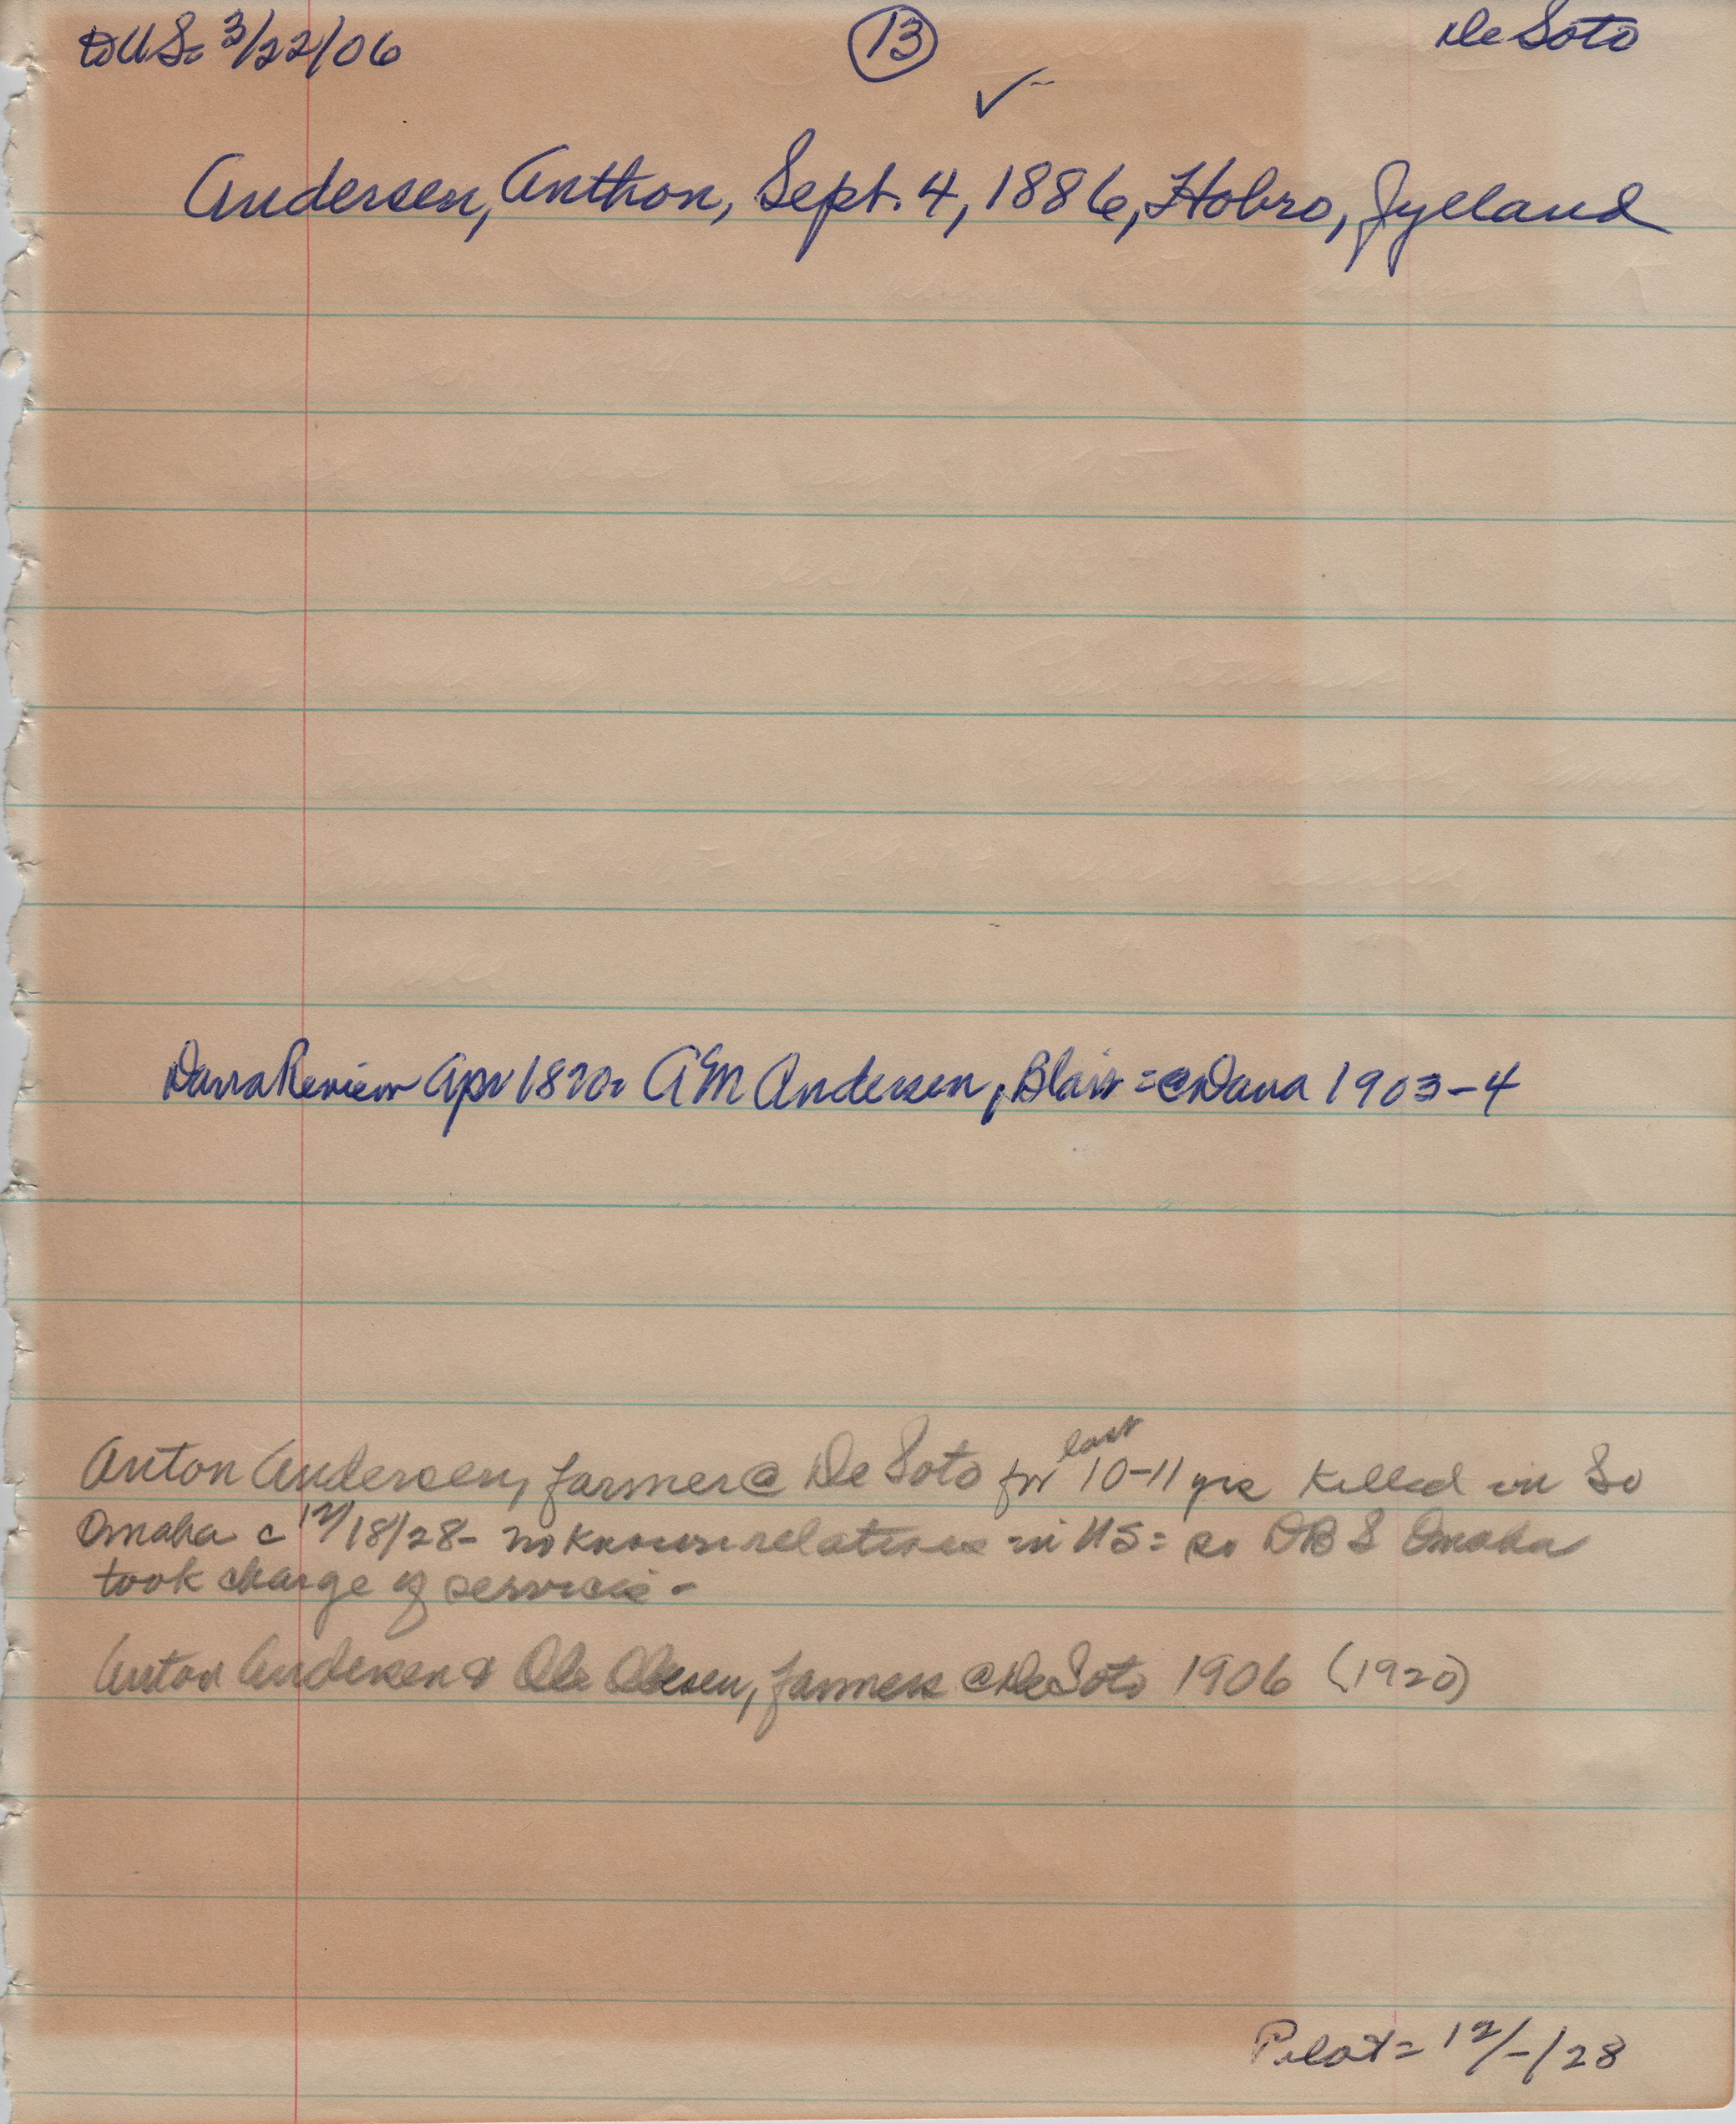 DUS= 3/22/06 13 De Soto
✓
Andersen, Anthon, Sept. 4, 1886, Hobro, Jylland
Dana Review Apr 1820= AM Andersen, Blair = @ Dana 1903-4
last
Anton Andersen, farmer @ De Soto for 10-11 yrs killed in So
Omaha c 12/18/28- no known relatives in US= so DBS Omaha
took charge of services-
Anton Andersen & Ole Olesen, farmers @ DeSoto 1906 (1920)
Pilot= 12/-/28